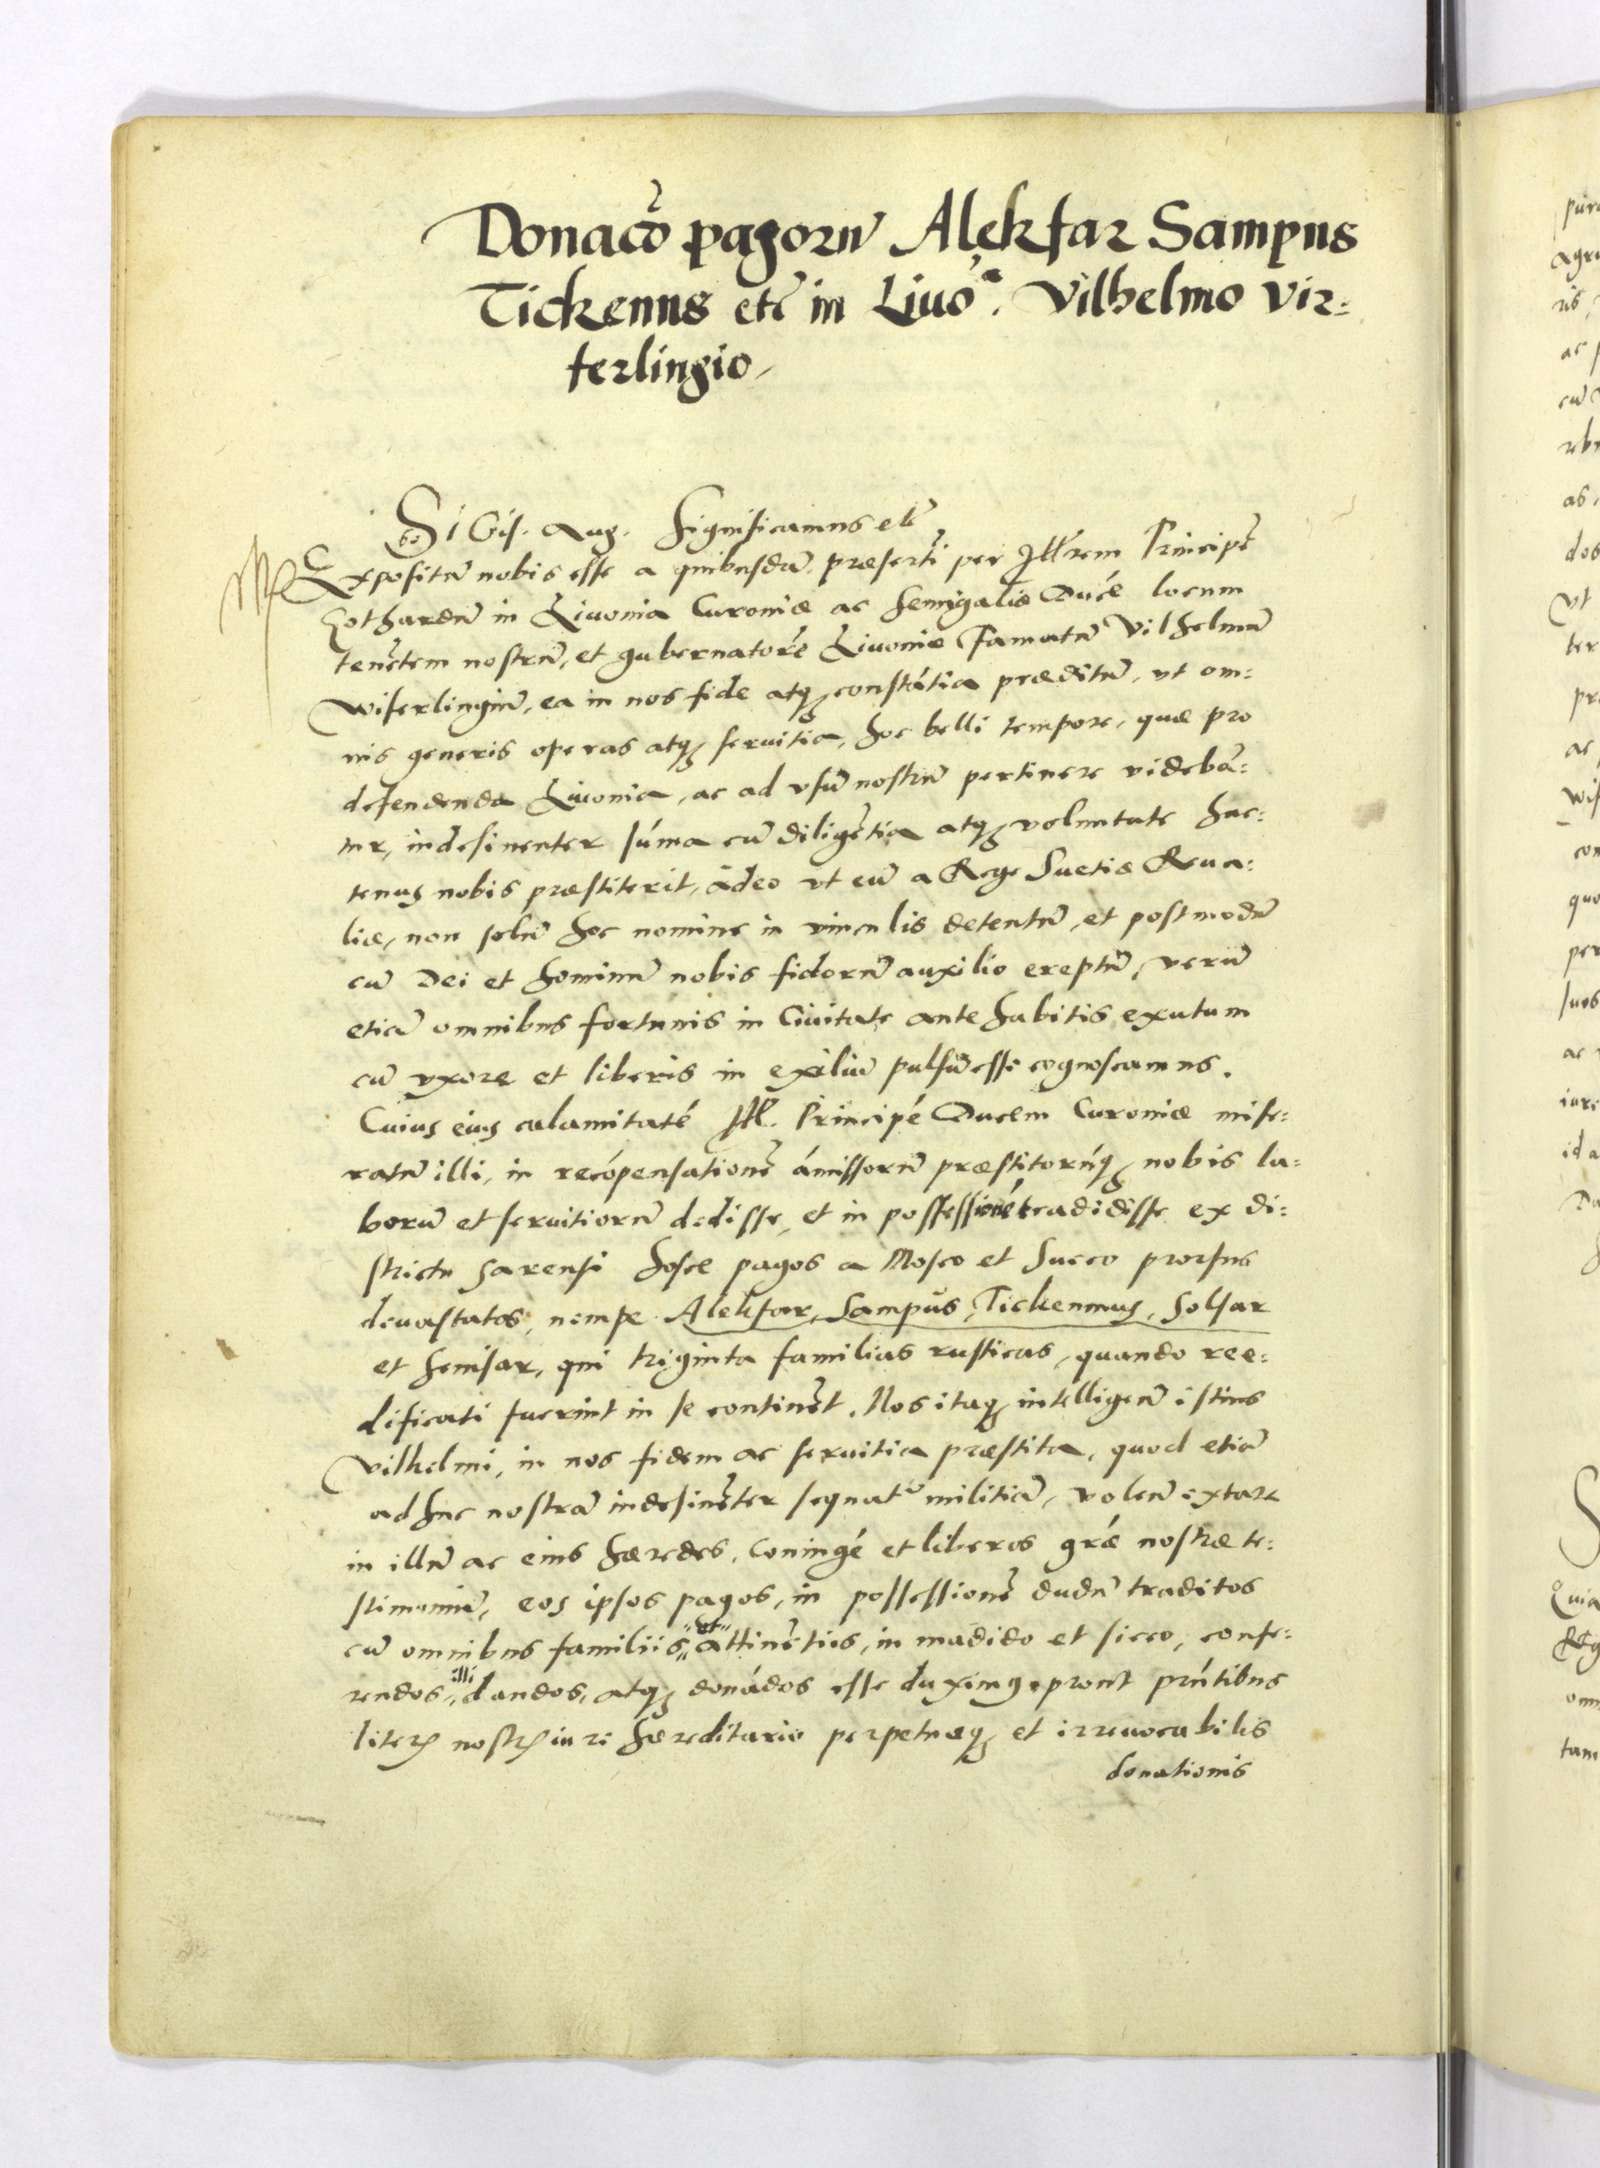 Donacõ pagorũ Alekfar Sampus
Tickenus etc̃ in Liuoᵃ. Vilhelmo Vir=
ferlingio,
Sigis. Aug. Significamus etc̃
Expositũ nobis esse a quibusdã, præsertĩ per Illr̃em Principẽ
Gothardũ in Liuonia Curoniæ ac Semigaliæ Ducẽ locum
tenẽtem nostrũ, et gubernatorẽ Liuoniæ Famatũ Vilhelmũ
Wiferlingiũ, ea in nos fide atq; constãtia præditũ, vt om=
nis generis operas atq; seruitia, hoc belli tempore, quæ pro
defendenda Liuonia, ac ad vsũ nostrũ pertinere videbã=
tur, indesinenter sũma cũ diligẽtia atq; voluntate hac=
tenus nobis præstiterit, adeo vt eũ a Rege Suetiæ Reua=
liæ, non solũ hoc nomine in vinculis detentũ, et postmodũ
cũ Dei et hominũ nobis fidorũ auxilio ereptũ, verũ
etiã omnibus fortunis in Ciuitate ante habitis exutum
cũ vxore et liberis in exiliũ pulsũ esse cognoscamus.
Cuius eius calamitatẽ Ill. Principẽ Ducem Curoniæ mise=
ratũ illi, in recõpensationẽ amissorũ præstitorũq; nobis la=
borũ et seruitiorũ dedisse, et in possessionẽ tradidisse ex di=
strictu Sarensi hosce pagos a Mosco et Sueco prorsus
deuastatos, nempe Alekfar, Sampus, Tickenmus, Solsar
et Semisar, qui triginta familias rusticas, quando ree=
dificati fuerint in se continẽt. Nos itaq; intelligen̄ istius
Vilhelmi, in nos fidem ac seruitia præstita, quod etiã
adhuc nostrã indesinẽter sequatʳ militiã, volen̄ extare
in illũ ac eius hæredes, Coniugẽ et liberos gr̃æ nostræ te=
stimoniũ, eos ipsos pagos, in possessionẽ dudũ traditos
cũ omnibus familiis et attinẽtiis, in madido et sicco, confe=
rendos illi dandos, atq; donãdos esse duximus, prout pñtibus
literis nostris iuri hæreditario perpetuæq; et irreuocabilis
donationis